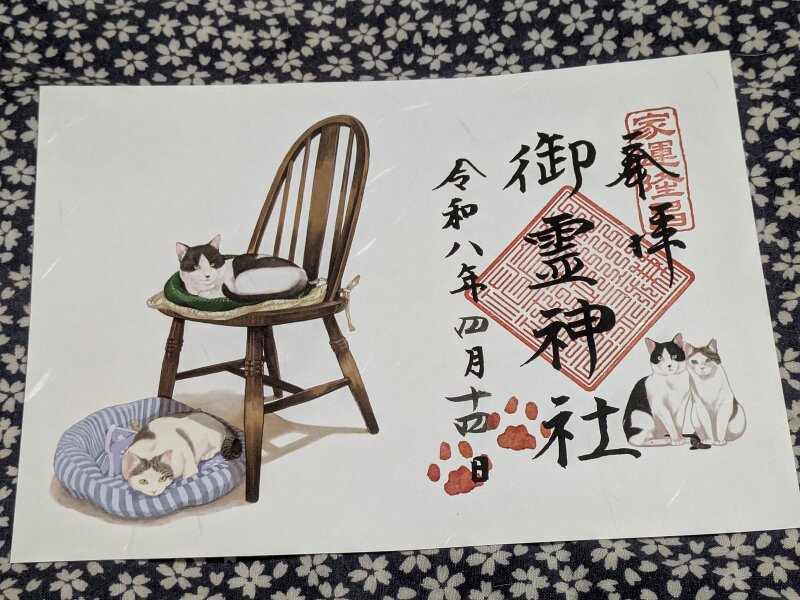 家運隆昌
奉拝
御霊神社
令和八年四月十四日